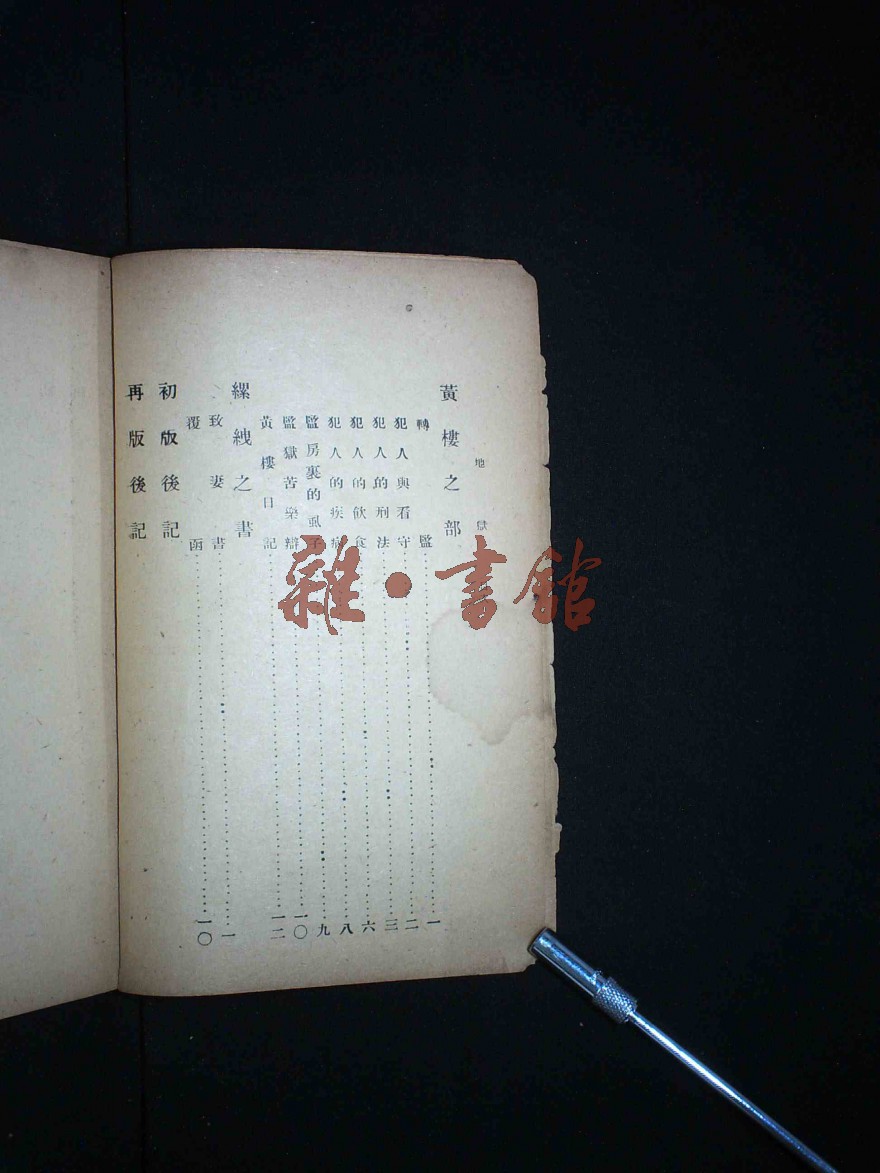 地獄
黃樓之部
轉監……一
犯人與看守……二
犯人的刑法……三
犯人的飲食……六
犯人的疾病……八
監房裏的虱子……九
監獄苦樂辯……一〇
黃樓日記……一二
縲絏之書
致妻書……一
覆函……一〇
初版後記
再版後記
雜·書館